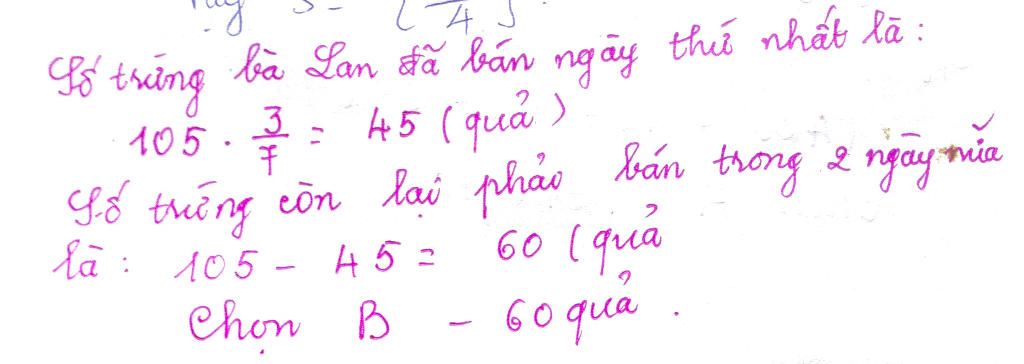 Số trứng bà Lan đã bán ngày thứ nhất là :
105 . 3/7 = 45 (quả)
Số trứng còn lại phải bán trong 2 ngày nữa
là : 105 - 45 = 60 (quả
Chọn B - 60 quả .